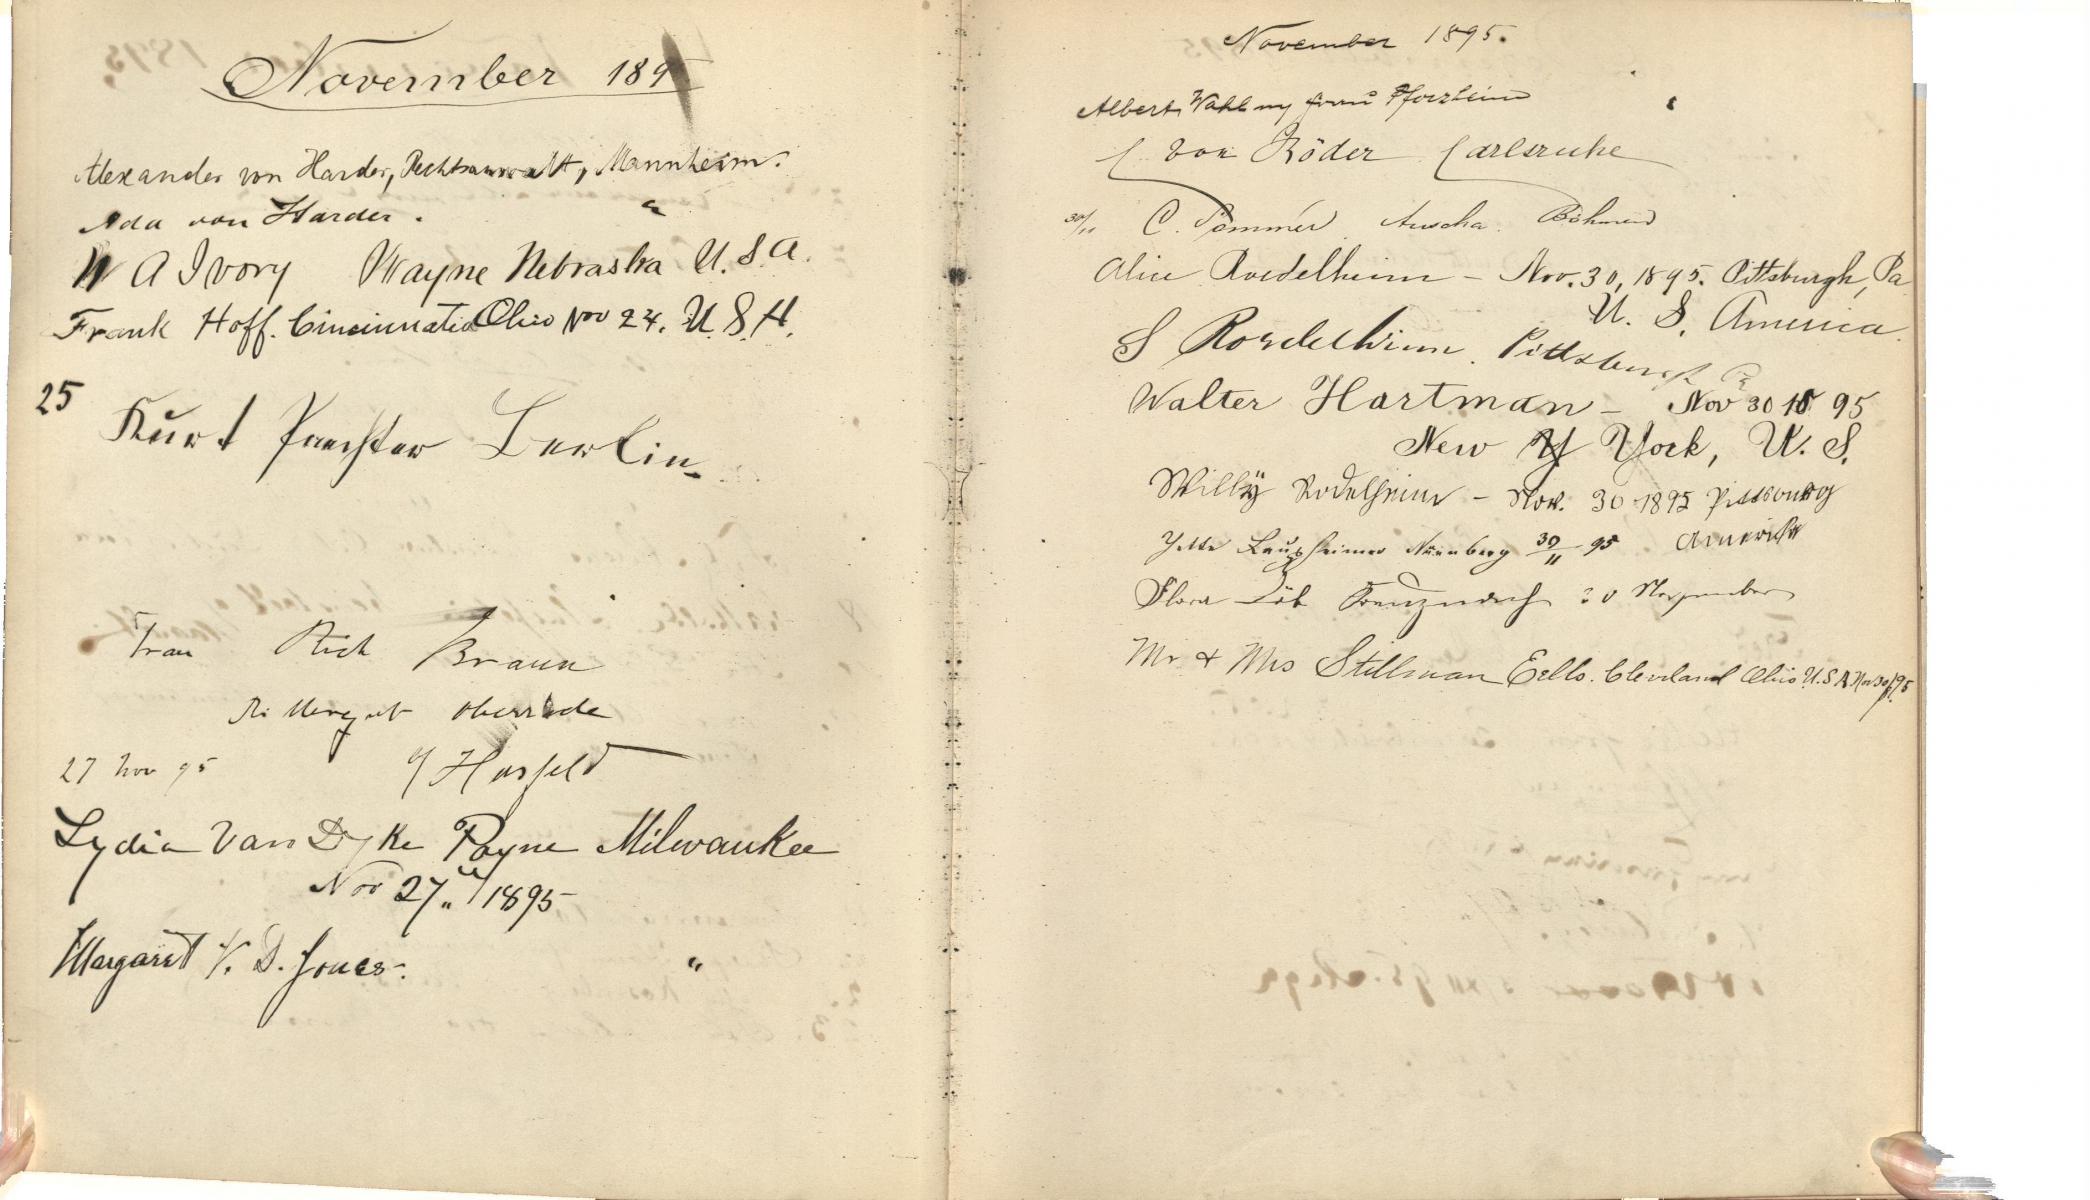 November 189
Alexander von Harder, Rechtsanwalt, Mannheim.
Ada von Harder. "
W A Ivory Wayne Nebraska U.S.A.
Frank Hoff. Cincinnati Ohio Nov 24. U.S.A.
25
Kurt Berlin
Frau Rich Braun
Rittergut Oberrode
27 Nov 95 Hersfeld
Lydia Van Dyke Payne Milwaukee
Nov 27" 1895
Margaret V. D. Jones. "
November 1895.
Albert Wahl Frau Pforzheim
von Röder Carlsruhe
30/11 C. Sommer Auscha Böhmen
Alice Roedelheim – Nov. 30, 1895. Pittsburgh, Pa
U. S. America.
S Roedelheim. Pittsburgh Pa
Walter Hartman – Nov 30 18 95
New York, U. S.
Willÿ Rödelheim – Nov. 30 1895 Pittsburg
Nürnberg 30/11 95 Amerika
Flora Löb Kreuznach 30 November
Mr & Mrs Stillman Eells. Cleveland Ohio U.S.A Nov 30/95